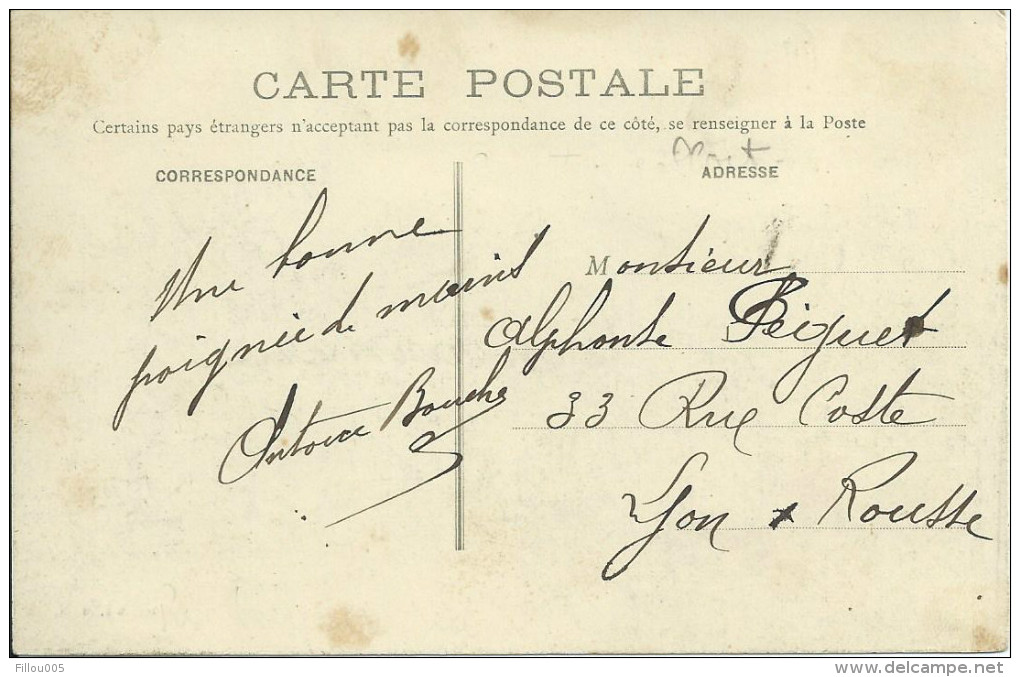 CARTE POSTALE
Certains pays étrangers n'acceptant pas la correspondance de ce côté, se renseigner à la Poste
CORRESPONDANCE
Une bonne
poignée de mains
Antoine Bouche
ADRESSE
Monsieur
Alphonse Peiguet
33 Rue Coste
Lyon x Rousse
Fillou005
www.delcampe.net